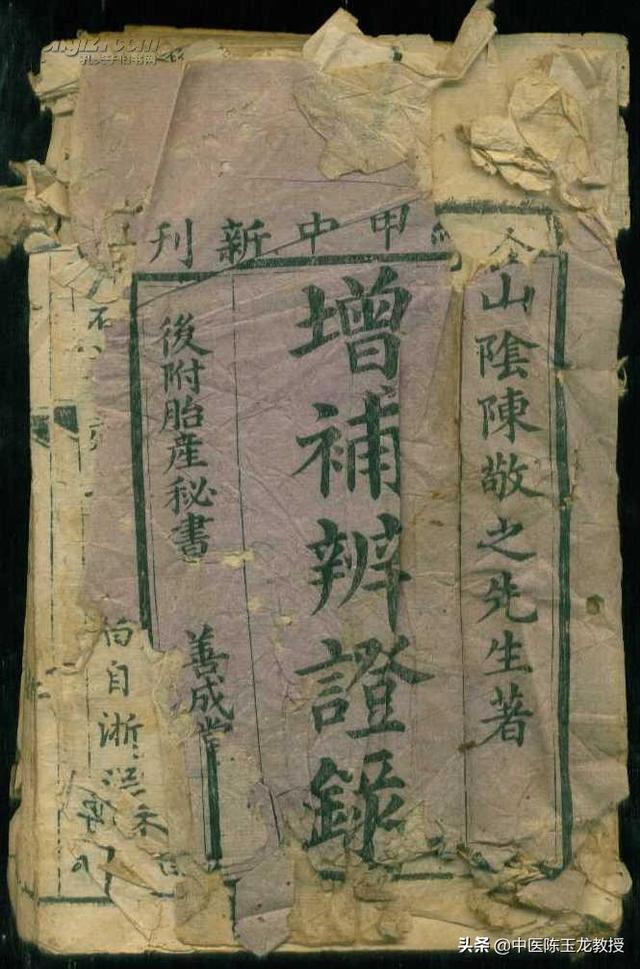 孔夫子旧书网
甲中新刊
山陰陳敬之先生著
增補辨證錄
後附胎產秘書
善成堂
自浙
头条 @中医陈玉龙教授